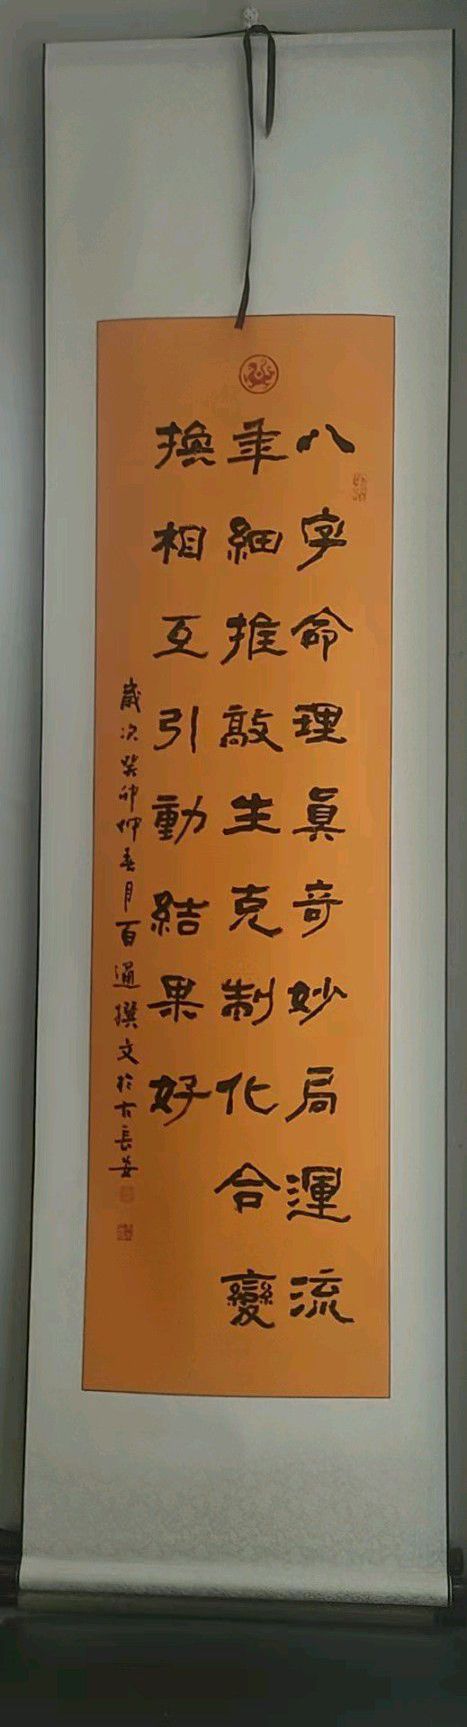 八字命理眞奇妙局運流
年細推敲生克制化合變
換相互引動結果好
歲次癸卯仲春月百通撰文於古長安